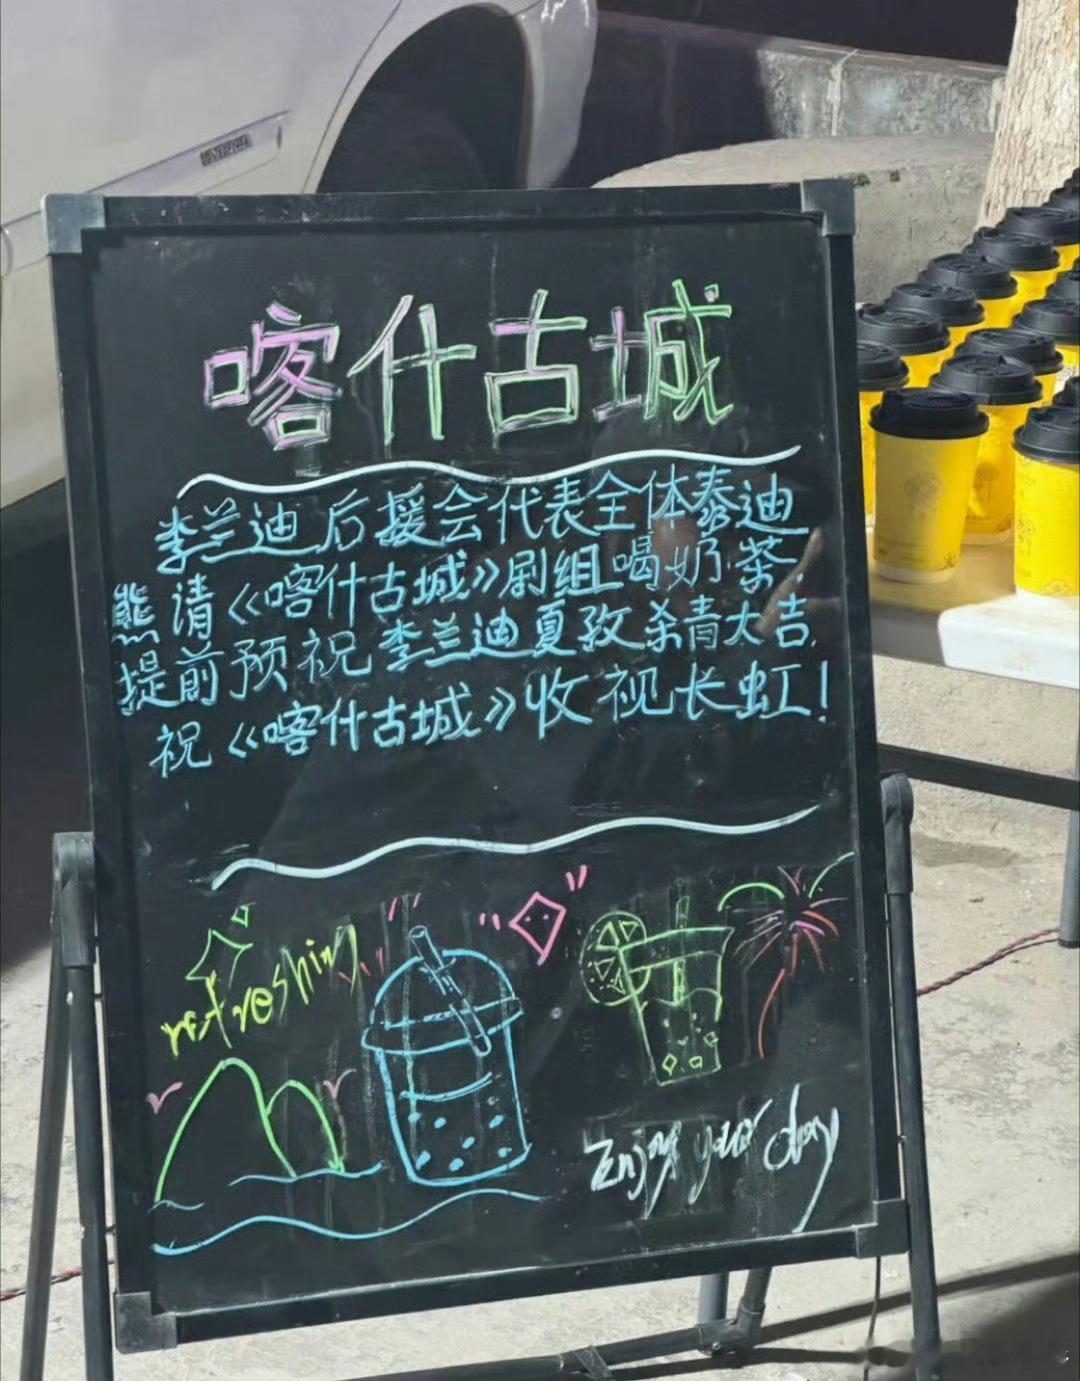 喀什古城
李兰迪后援会代表全体泰迪
熊请《喀什古城》剧组喝奶茶,
提前预祝李兰迪夏孜杀青大吉,
祝《喀什古城》收视长虹！
refreshing
Enjoy your day